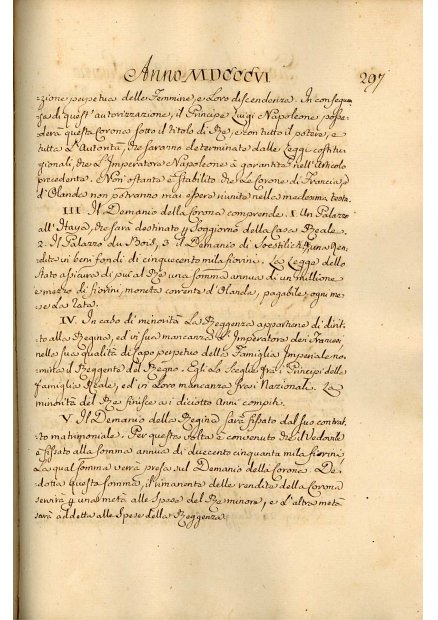 Anno MDCCCVI
297
zione perpetua delle Femmine, e Loro discendenza. In conseguen
za di quest'autorizzazione, il Principe Luigi Napoleone posse
derà questa Corona sotto il titolo di Re, e con tutto il potere, e
tutta L'Autorità, che saranno determinate dalle Leggi costitu
zionali, che L'Imperatore Napoleone à garantite nell'articolo
precedente. Non ostante è stabilito che Le Corone di Francia, e
d'Olanda non potranno mai essere riunite nella medesima testa.
III. Il Demanio della Corona comprende 1. Un Palazzo
all'Haya, che sarà destinato p Soggiorno della Casa Reale.
2. Il Palazzo du Bois, 3. il Demanio di Soestdich, una Ren
dita in beni fondi di cinquecento mila fiorini. La Legge dello
Stato assicura di più al Re una somma annua di un millione
e mezzo di fiorini, moneta corrente d'Olanda, pagabile ogni me
se La rata.
IV. In caso di minorità La Reggenza appartiene di dirit
to alla Regina, ed in sua mancanza L'Imperatore dei Francesi
nella sua qualità di Capo perpetuo della Famiglia Imperiale no
mina il Reggente del Regno. Egli Lo Sceglie fra i Principi della
famiglia Reale, ed in Loro mancanza fra i Nazionali. La
minorità del Re finisce ai diciotto Anni compiti.
V. Il Demanio della Regina sarà fissato dal suo contrat
to matrimoniale. Per questa volta è convenuto che il Vedovile
è fissato alla somma annua di duecento cinquanta mila fiorini
La qual somma verrà presa sul Demanio della Corona. De
dotta questa somma, il rimanente delle rendite della Corona
servirà p una metà alle Spese del Re minore, e L'altra metà
sarà addetta alle Spese della Reggenza.